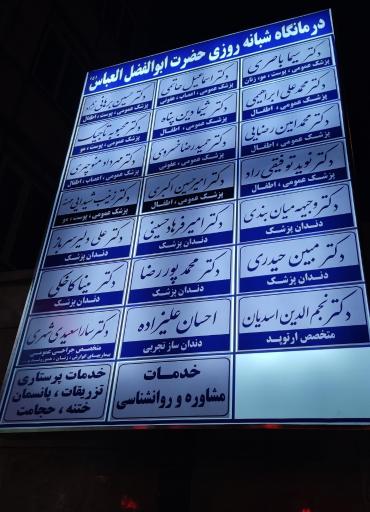 درمانگاه شبانه روزی حضرت ابوالفضل العباس (ع)
دکتر سیما باصری
پزشک عمومی ، پوست ، مو، زنان
دکتر اسماعیل حاتمی
پزشک عمومی ، اعصاب ، عفونی
دکتر حسین برهانی
پزشک عمومی ، پوست ، اطفال
دکتر محمدعلی ابراهیمی
پزشک عمومی ، اطفال
دکتر شیما دین پناه
پزشک عمومی ، اطفال
دکتر محبوبه تاجیک
پزشک عمومی ، پوست ، مو
دکتر محمدامین رضایی
پزشک عمومی ، اطفال
دکتر حمیدرضا خسروی
پزشک عمومی ، عفونی
دکتر مهرداد منوچهری
پزشک عمومی ، اعصاب ، اطفال
دکتر نوید توفیقی راد
پزشک عمومی ، اطفال
دکتر امیرحسین اکبری
پزشک عمومی ، اطفال
دکتر زینب
پزشک عمومی ، پوست ، مو
دکتر وجیهه میان بندی
دندان پزشک
دکتر امیر فرهاد حسینی
دندان پزشک
دکتر علی دلیر سرباز
دندان پزشک
دکتر مبین حیدری
دندان پزشک
دکتر محمد پور رضا
دندان پزشک
دکتر مینا کاخکی
دندان پزشک
دکتر نجم الدین اسدیان
متخصص ارتوپد
احسان علیزاده
دندان ساز تجربی
دکتر سارا سعیدی
متخصص جراحی عمومی
خدمات
مشاوره و روانشناسی
خدمات پرستاری
تزریقات ، پانسمان
ختنه ، حجامت